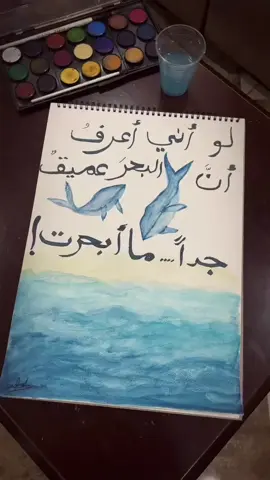 لو أنّي أعرفُ
أنَّ البحرَ عميقٌ
جداً.... ما أبحرت!